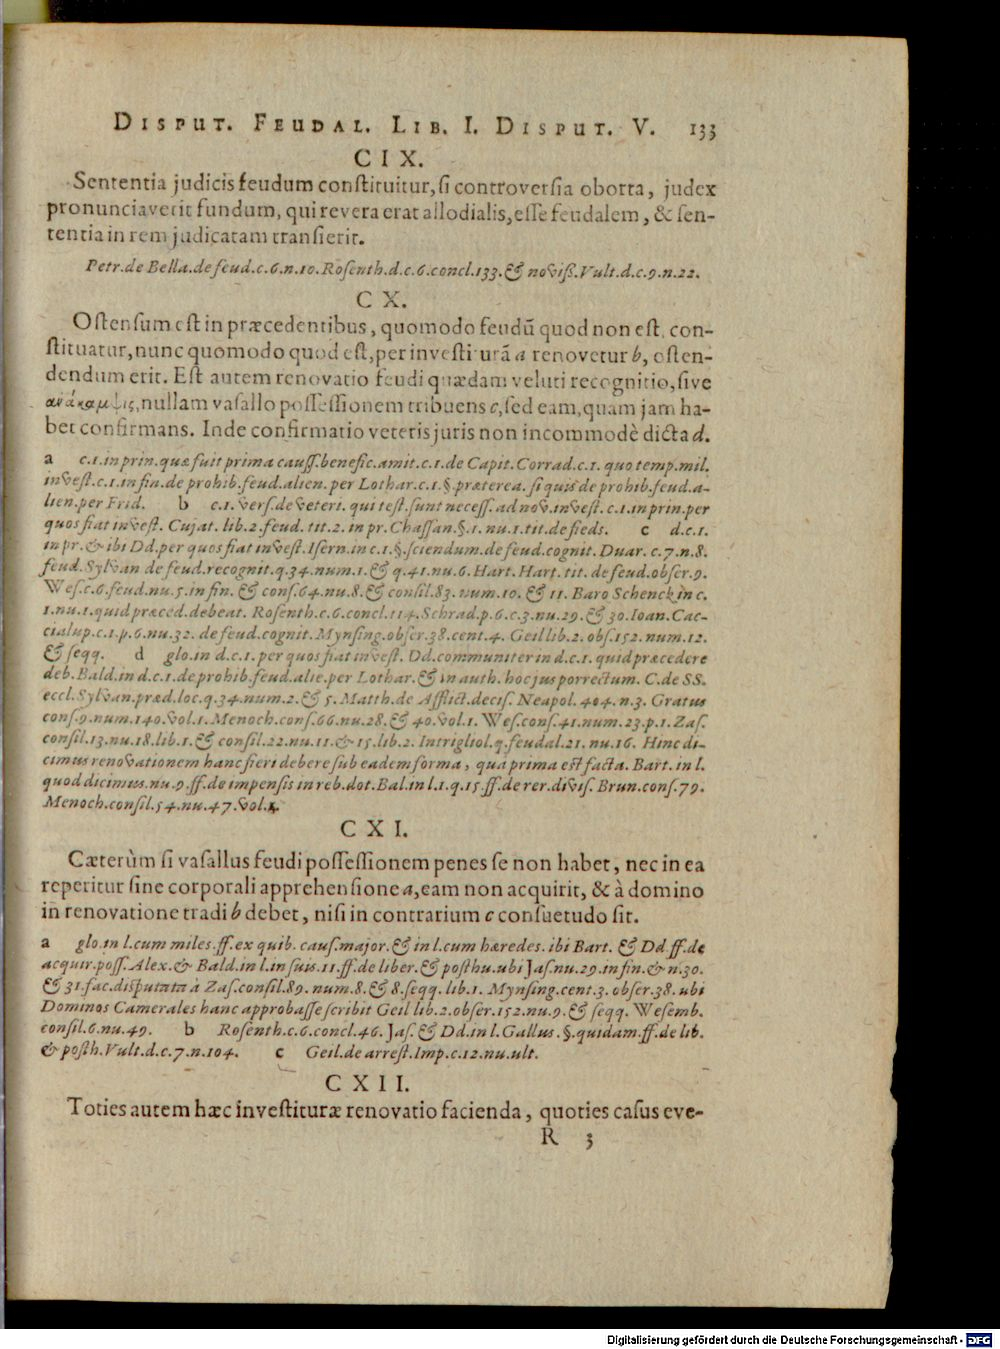 DISPUT. FEUDAL. LIB. I. DISPUT. V. 133
CIX.
Sententia judicis feudum constituitur, si controversia oborta, judex
pronunciaverit fundum, qui revera erat allodialis, esse feudalem, & sen-
tentia in rem judicatam transierit.
Petr. de Bella. de feud. c. 6. n. 10. Rosenth. d. c. 6. concl. 133. & noviß. Vult. d. c. 9. n. 22.
CX.
Ostensum est in præcedentibus, quomodo feudū quod non est, con-
stituatur, nunc quomodo quod est, per investiturā a renovetur b, osten-
dendum erit. Est autem renovatio feudi quædam veluti recognitio, sive
ανάκαμψις, nullam vasallo possessionem tribuens c, sed eam, quam jam ha-
bet confirmans. Inde confirmatio veteris juris non incommodè dicta d.
a c. 1. in prin. quæ fuit prima causs. benefic. amit. c. 1. de Capit. Corrad. c. 1. quo temp. mil.
invest. c. 1. in fin. de prohib. feud. alien. per Lothar. c. 1. §. præterea. si quis de prohib. feud. a-
lien. per Frid. b c. 1. vers. de veteri. qui test. sunt necess. ad nov. invest. c. 1. in prin. per
quos fiat invest. Cujat. lib. 2. feud. tit. 2. in pr. Chassan. §. 1. nu. 1. tit. de fieds. c d. c. 1.
in pr. & ibi Dd. per quos fiat invest. Isern. in c. 1. §. sciendum. de feud. cognit. Duar. c. 7. n. 8.
feud. Sylvan de feud. recognit. q. 34. num. 1. & q. 41. nu. 6. Hart. Hart. tit. de feud. obser. 9.
Wes. c. 6. feud. nu. 5. in fin. & cons. 64. nu. 8. & consil. 83. num. 10. & 11. Baro Schenck in c.
1. nu. 1. quid præced. debeat. Rosenth. c. 6. concl. 114. Schrad. p. 6. c. 3. nu. 29. & 30. Ioan. Cac-
cialup. c. 1. p. 6. nu. 32. de feud. cognit. Mynsing. obser. 38. cent. 4. Geil lib. 2. obs. 152. num. 12.
& seqq. d glo. in d. c. 1. per quos fiat invest. Dd. communiter in d. c. 1. quid præcedere
deb. Bald. in d. c. 1. de prohib. feud. alie. per Lothar. & in auth. hoc jus porrectum. C. de SS.
eccl. Sylvan. præd. loc. q. 34. num. 2. & 5. Matth. de Afflict. decis. Neapol. 404. n. 3. Gratus
cons. 9. num. 140. vol. 1. Menoch. cons. 66. nu. 28. & 40. vol. 1. Wes. cons. 41. num. 23. p. 1. Zas.
consil. 13. nu. 18. lib. 1. & consil. 22. nu. 11. & 15. lib. 2. Intrigliol. q. feudal. 21. nu. 16. Hinc di-
cimus renovationem hanc fieri debere sub eadem forma, quâ prima est facta. Bart. in l.
quod dicimus. nu. 9. ff. de impensis in reb. dot. Bal. in l. 1. q. 15. ff. de rer. divis. Brun. cons. 79.
Menoch. consil. 54. nu. 47. vol. 1.
CXI.
Cæterùm si vasallus feudi possessionem penes se non habet, nec in ea
reperitur sine corporali apprehensione a, eam non acquirit, & à domino
in renovatione tradi b debet, nisi in contrarium c consuetudo sit.
a glo. in l. cum miles. ff. ex quib. caus. major. & in l. cum hæredes. ibi Bart. & Dd. ff. de
acquir. poss. Alex. & Bald. in l. in suis. 11. ff. de liber. & posthu. ubi Jas. nu. 29. in fin. & n. 30.
& 31. fac. disputata à Zas. consil. 89. num. 8. & 8. seqq. lib. 1. Mynsing. cent. 3. obser. 38. ubi
Dominos Camerales hanc approbasse scribit Geil lib. 2. obser. 152. nu. 9. & seqq. Wesemb.
consil. 6. nu. 49. b Rosenth. c. 6. concl. 46. Jas. & Dd. in l. Gallus. §. quidam. ff. de lib.
& posth. Vult. d. c. 7. n. 104. c Geil. de arrest. Imp. c. 12. nu. ult.
CXII.
Toties autem hæc investituræ renovatio facienda, quoties casus eve-
R 3
Digitalisierung gefördert durch die Deutsche Forschungsgemeinschaft - DFG